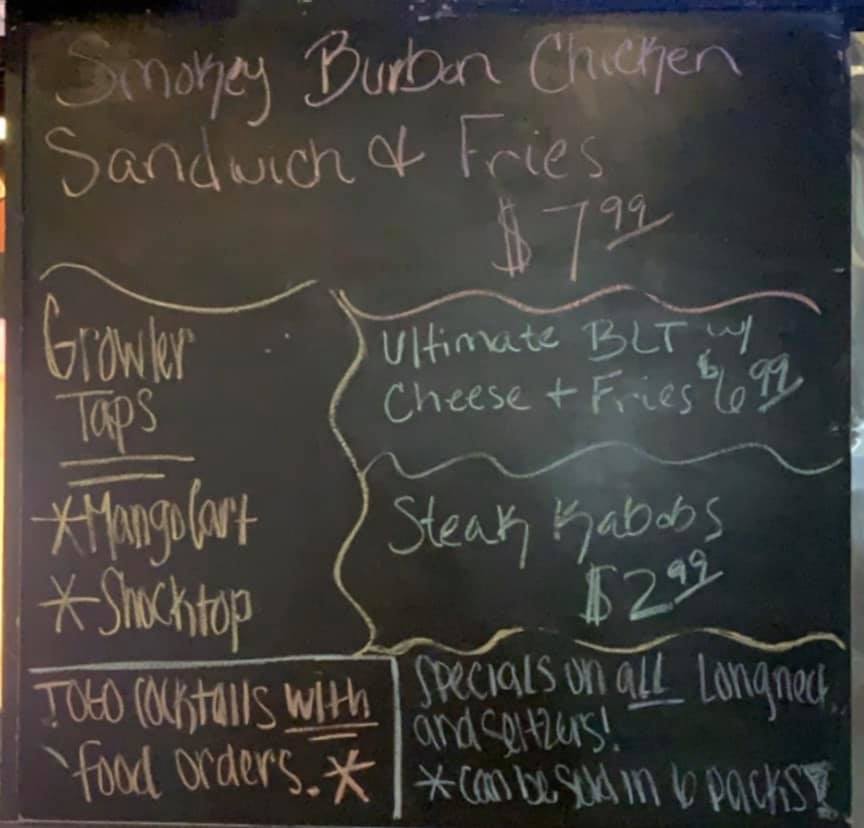 Smokey Burbon Chicken
Sandwich & Fries
$7.99
Growler
Taps
*Mango Cart
*Shocktop
Ultimate BLT w/
Cheese + Fries $6.99
Steak Kabobs
$2.99
TOGO cocktails with
food orders.*
Specials on all Longneck
and Seltzers!
*can be sold in 6 packs!